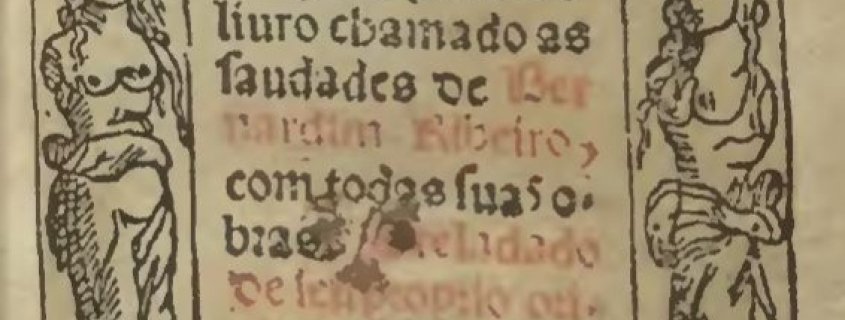 liuro chamado as
saudades de Ber
nardim Ribeiro,
com todas suas o-
bras. Treladado
de seu proprio ori-